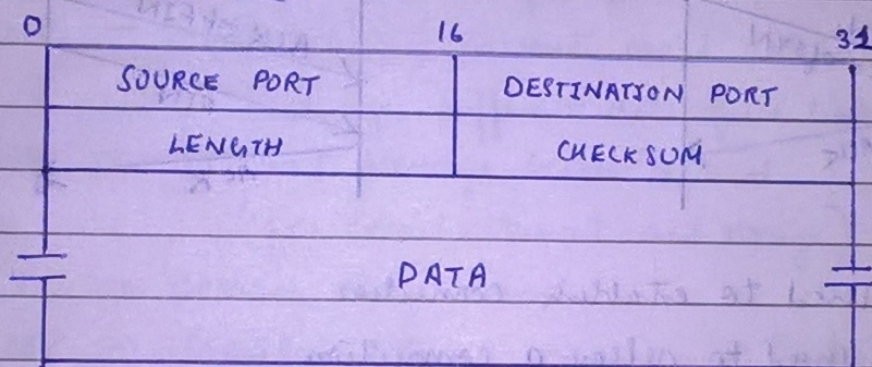 0 16 31
SOURCE PORT DESTINATION PORT
LENGTH CHECKSUM
DATA